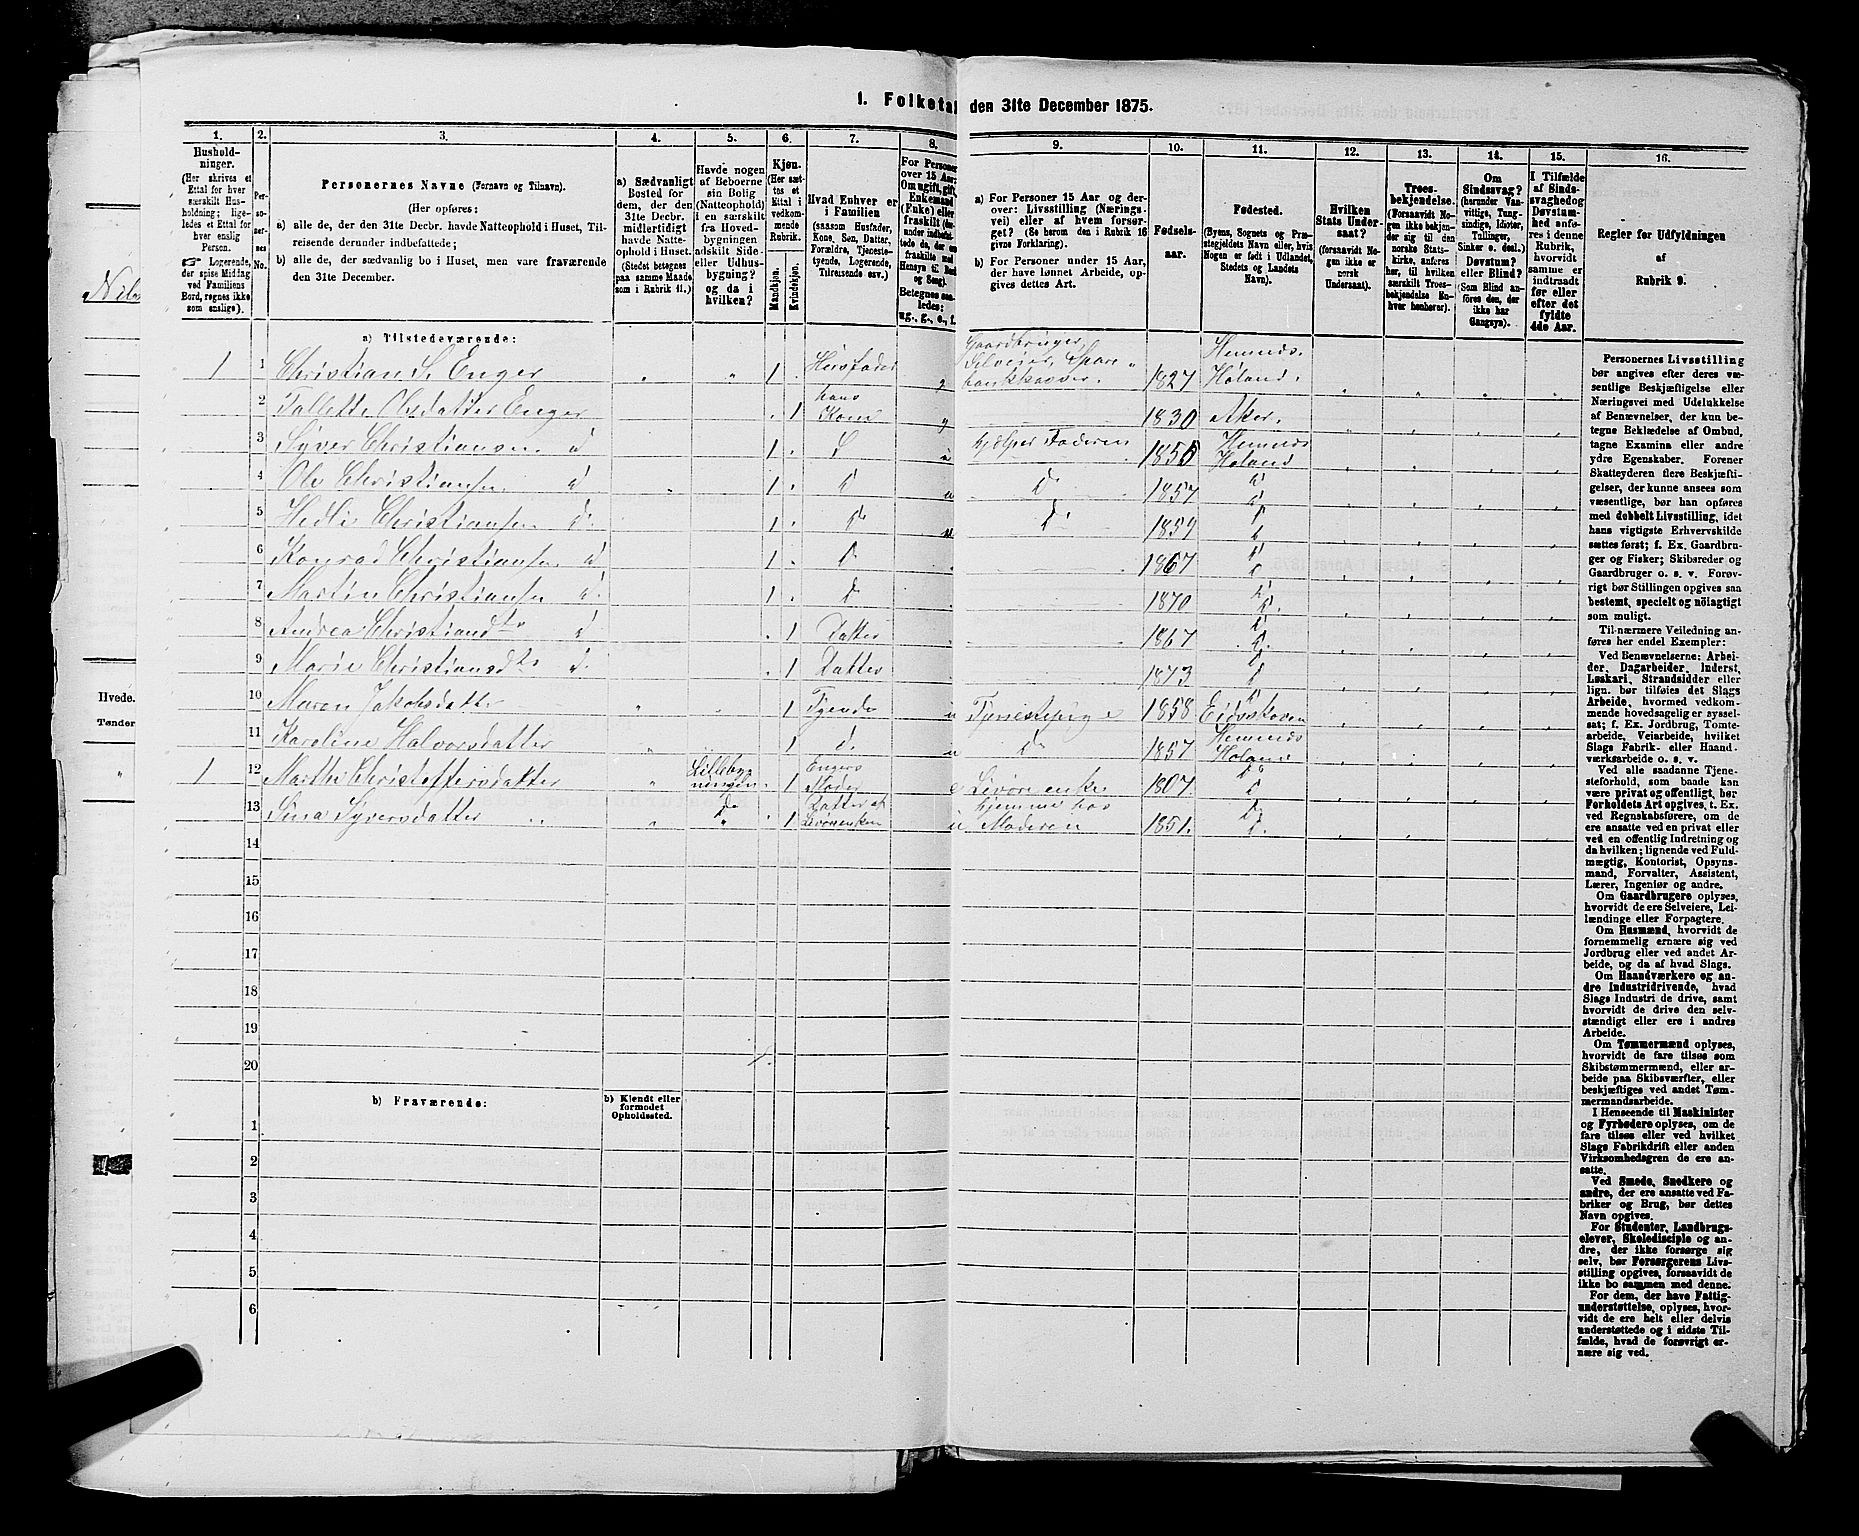 1. Folketæ den 31te December 1875.
1. 2. 3. 4. 5. 6. 7. 8. 9. 10. 11. 12. 13. 14. 15. 16.
Hushold-
ninger.
(Her skrives et
Ettal for hver
særskilt Hus-
holdning; lige-
ledes et Ettal for
hver enslig
Person.
☞ Logerende,
der spise Middag
ved Familiens
Bord, regnes ikke
som enslige).
Per-
so-
ner-
nes
No.
Personernes Navne (Fornavn og Tilnavn).
(Her opføres:
a) alle de, der den 31te Decbr. havde Natteophold i Huset, Til-
reisende derunder indbefattede;
b) alle de, der sædvanlig bo i Huset, men vare fraværende
den 31te December.
a) Sædvanligt
Bosted for
dem, der den
31te Decbr.
midlertidigt
havde Natte-
ophold i Huset.
(Stedet betegnes
paa samme Maade
som i Rubrik 11.)
Havde nogen
af Beboerne
sin Bolig
(Natteophold)
i en særskilt
fra Hoved-
bygningen
adskilt Side-
eller Udhus-
bygning?
og da i
hvilken?
Kjøn.
(Her sæt-
tes et
Ettal i
vedkom-
mende
Rubrik.
Mandkjøn.
Kvindekjøn.
Hvad Enhver er
i Familien
(saasom Husfader,
Kone, Søn, Datter,
Forældre, Tjeneste-
tyende, Logerende,
Tilreisende osv.)
For Personer
over 15 Aar:
Om ugift, gift,
Enkemand
(Enke) eller
fraskilt
Betegnes saa-
ledes:
ug., g., e., f.
a) For Personer 15 Aar og der-
over: Livsstilling (Nærings-
vei) eller af hvem forsør-
get? (Se herom den i Rubrik 16
givne Forklaring).
b) For Personer under 15 Aar,
der have lønnet Arbeide, op-
gives dettes Art.
Fødsels-
aar.
Fødested.
(Byens, Sognets og Præ-
stegjeldets Navn eller, hvis
Nogen er født i Udlandet,
Stedets og Landets
Navn).
Hvilken
Stats Under-
saat?
(forsaavidt No-
gen ikke er
norsk
Undersaat).
Troes-
bekjendelse.
(Forsaavidt No-
gen ikke bekjen-
der sig til den
norske Stats-
kirke, anføres
her, til hvilken
særskilt Troes-
bekjendelse En-
hver henhører).
Om
Sindssvag?
(herunder Van-
vittige, Tung-
sindige, Idioter,
Tullinger,
Sinker o. desl.)
Døvstum?
eller Blind?
(Som Blind an-
føres den, der
ikke har
Gangsyn).
I Tilfælde
af Sinds-
svaghed og
Døvstum-
hed anfø-
res i denne
Rubrik,
hvorvidt
samme er
indtraadt
før eller
efter det
fyldte
4de Aar.
Regler for Udfyldningen
af
Rubrik 9.
a) Tilstedeværende:
1 1 Christian S. Enger 1 Husfader g Gaardbruger, Selveier, Spare-bankkasser. 1827 Hemnes. Høland.
2 Olsdatter Enger 1 hans Kone g 1830 Aker.
3 Syver Christiansen d 1 S u hjelper Faderen 1856 Hemnes Høland
4 Ole Christiansen d 1 d u do 1857 d d
5 Christiansen d. 1 do u do 1859 d d
6 Konrad Christiansen d 1 d 1867 d d
7 Martin Christiansen d. 1 d 1870 d d.
8 Andrea Christiansdtr d 1 Datter 1867 d d.
9 Marie Christiansdtr d. 1 Datter 1873 d d
10 Maren Jakobsdatter 1 Tjende u Tjenestepige 1858 Eidsskoven
11 Karoline Halvorsdatter 1 d. u do 1857 Hemnes Høland
1 12 Marthe Christoffersdatter Lillebyg-ningen 1 Engers Moder e Levørenke 1807. do d
13 Sina Syversdatter do 1 Datter af Levørenken u hjemme hos Moderen 1851. d d.
14
15
16
17
18
19
20
b) Fraværende:
b) Kjendt eller
formodet
Opholdssted.
1
2
3
4
5
6
Personernes Livsstilling
bør angives efter deres væ-
sentlige Beskjæftigelse eller
Næringsvei med Udelukkelse
af Benævnelser, der kun be-
tegne Beklædelse af Ombud,
tagne Examina eller andre
ydre Egenskaber. Forener
Skatteyderen flere Beskjæfti-
gelser, der kunne ansees som
væsentlige, bør han opføres
med dobbelt Livsstilling, idet
hans vigtigste Erhvervskilde
sættes først; f. Ex. Gaardbru-
ger og Fisker; Skibsreder og
Gaardbruger o. s. v. Forøv-
rigt bør Stillingen opgives saa
bestemt, specielt og nøiagtigt
som muligt.
Til nærmere Veiledning an-
føres her endel Exempler:
Ved Benævnelserne: Arbei-
der, Dagarbeider, Inderst,
Løskarl, Strandsidder eller
lign. bør tilføies det Slags
Arbeide, hvormed vedkom-
mende hovedsagelig er syssel-
sat; f. Ex. Jordbrug, Tomte-
arbeide, Veiarbeide, hvilket
Slags Fabrik- eller Haand-
værksarbeide o. s. v.
Ved alle saadanne Tjene-
steforhold, som baade kan
være privat og offentligt, bør
Forholdets Art opgives, t. Ex.
ved Regnskabsførere, om de
ere ansatte ved en privat eller
ved en offentlig Indretning og
da hvilken; lignende ved Fuld-
mægtig, Kontorist, Opsyns-
mand, Forvalter, Assistent,
Lærer, Ingeniør og andre.
Om Gaardbrugere oplyses,
hvorvidt de ere Selveiere, Lei-
lændinge eller Forpagtere.
Om Husmænd, hvorvidt de
fornemmelig ernære sig ved
Jordbrug eller ved andet Ar-
beide, og da af hvad Slags.
Om Haandværkere og an-
dre Industridrivende, hvad
Slags Industri de drive, samt
hvorvidt de drive den selv-
stændigt eller ere i andres
Arbeide.
Om Tømmermænd oplyses,
hvorvidt de fare tilsøs som
Skibstømmermænd, eller ar-
beide paa Skibsværfter, eller
beskjæftiges ved andet Tøm-
mermandsarbeide.
I Henseende til Maskinister
og Fyrbødere oplyses, om de
fare tilsøs eller ved hvilket
Slags Fabrikdrift eller anden
Virksomhedsgren de ere an-
satte.
Ved Smede, Snedkere og
andre, der ere ansatte ved Fa-
briker og Brug, bør dettes
Navn opgives.
For Studenter, Landbrugs-
elever, Skoledisciple og an-
dre, der ikke forsørge sig
selv, bør Forsørgerens Livs-
stilling opgives, forsaavidt de
ikke bo sammen med denne.
For dem, der have Fattig-
understøttelse, oplyses, hvor-
vidt de ere helt eller delvis
understøttede og i sidste Til-
fælde, hvad de forøvrigt er-
nære sig ved.
Hvede.
Tønder